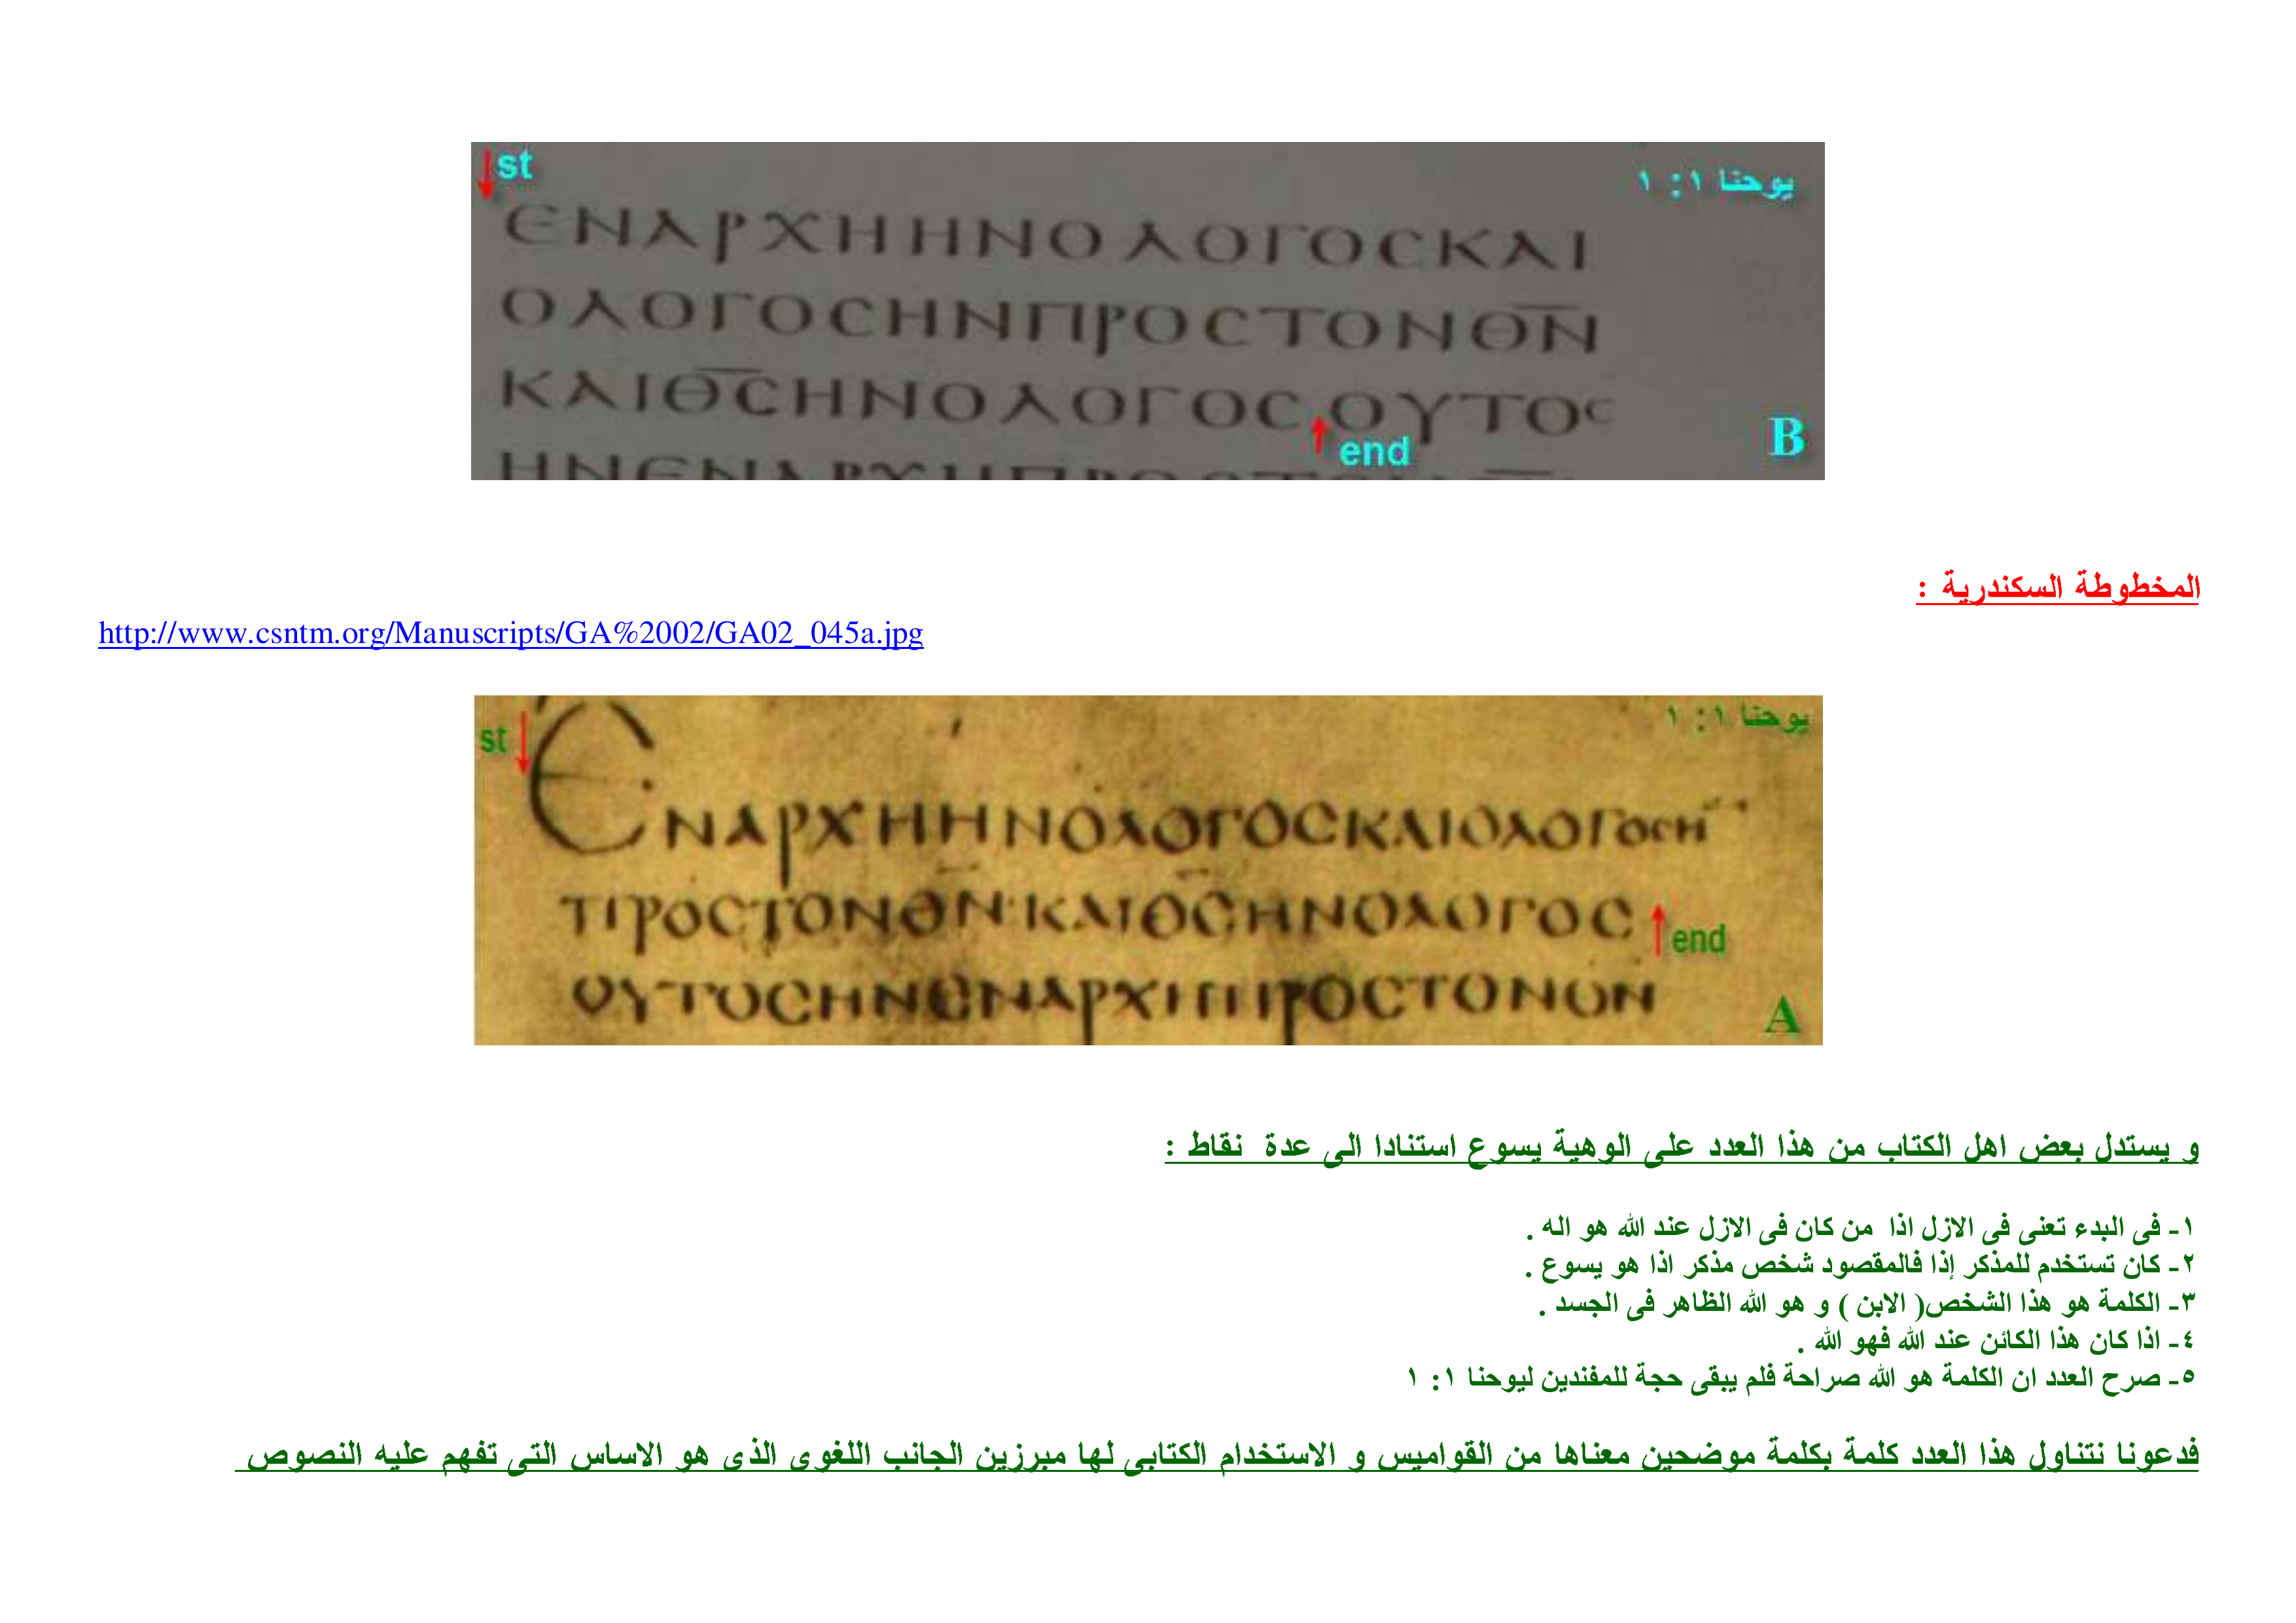 st
يوحنا ١: ١
ЄΝΑΡΧΗΗΝΟΛΟΓΟCΚΑΙ
ΟΛΟΓΟCΗΝΠΡΟCΤΟΝΘ̅Ν̅
ΚΑΙΘ̅C̅ΗΝΟΛΟΓΟCΟΥΤΟC
end
B
المخطوطة السكندرية :
http://www.csntm.org/Manuscripts/GA%2002/GA02_045a.jpg
يوحنا ١: ١
st
ЄΝΑΡΧΗΗΝΟΛΟΓΟCΚΑΙΟΛΟΓΟCΗ
ΠΡΟCΤΟΝΘ̅Ν̅·ΚΑΙΘ̅C̅ΗΝΟΛΟΓΟC
end
ΟΥΤΟCΗΝЄΝΑΡΧΗΠΡΟCΤΟΝΘΝ
A
و يستدل بعض اهل الكتاب من هذا العدد على الوهية يسوع استنادا الى عدة نقاط :
١- فى البدء تعنى فى الازل اذا من كان فى الازل عند الله هو اله .
٢- كان تستخدم للمذكر إذا فالمقصود شخص مذكر اذا هو يسوع .
٣- الكلمة هو هذا الشخص( الابن ) و هو الله الظاهر فى الجسد .
٤- اذا كان هذا الكائن عند الله فهو الله .
٥- صرح العدد ان الكلمة هو الله صراحة فلم يبقى حجة للمفندين ليوحنا ١: ١
فدعونا نتناول هذا العدد كلمة بكلمة موضحين معناها من القواميس و الاستخدام الكتابى لها مبرزين الجانب اللغوى الذى هو الاساس التى تفهم عليه النصوص